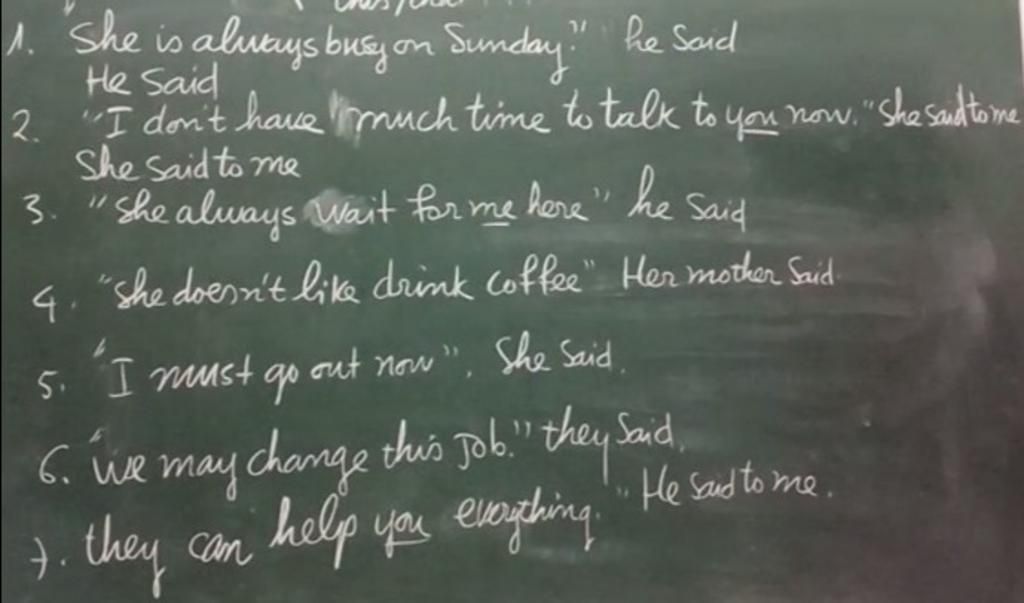 1. "She is always busy on Sunday." he said
He said
2. "I don't have much time to talk to you now." she said to me
She said to me
3. "she always wait for me here" he said
4. "she doesn't like drink coffee" Her mother said.
5. "I must go out now". She said.
6. "we may change this job." they said.
7. they can help you everything." He said to me.